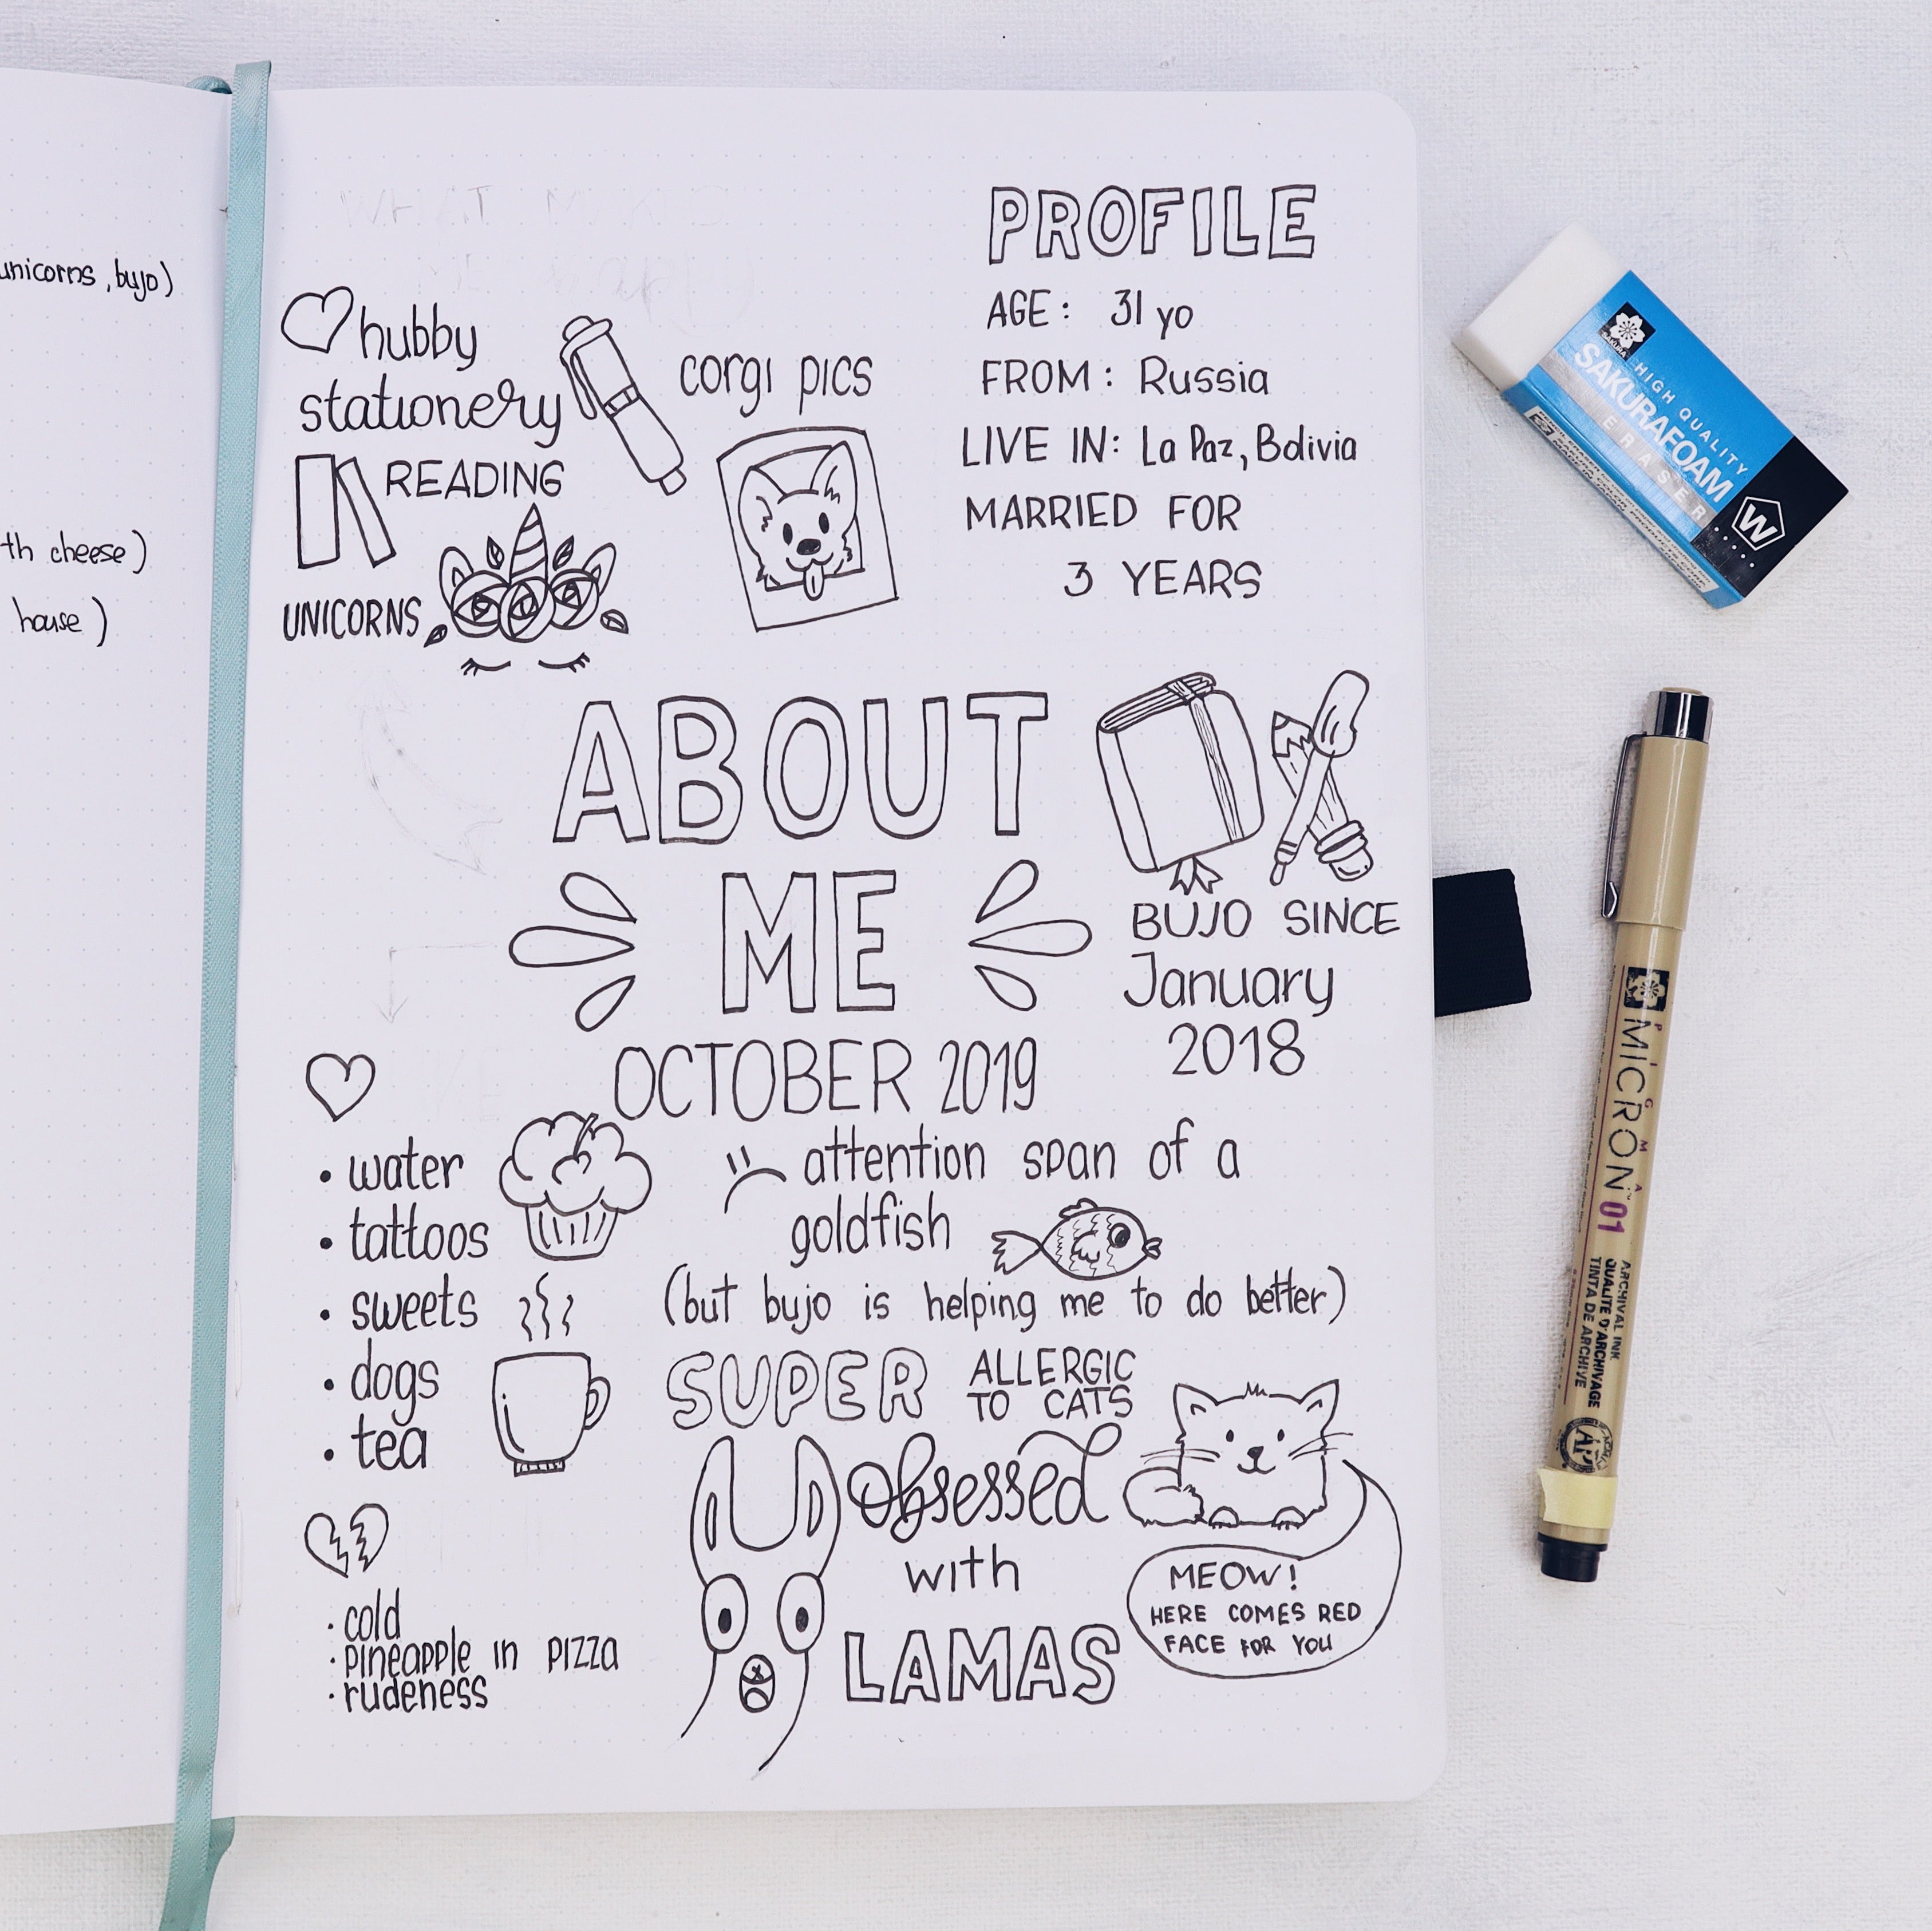 unicorns, bujo)
th cheese)
house)
WHAT MAKES
ME
PROFILE
AGE: 31 yo
FROM: Russia
LIVE IN: La Paz, Bolivia
MARRIED FOR
3 YEARS
hubby
stationery
READING
UNICORNS
corgi pics
ABOUT
ME
OCTOBER 2019
BUJO SINCE
January
2018
• water
• tattoos
• sweets
• dogs
• tea
attention span of a
goldfish
(but bujo is helping me to do better)
SUPER
ALLERGIC
TO CATS
obsessed
with
LAMAS
MEOW!
HERE COMES RED
FACE FOR YOU
· cold
· pineapple in pizza
· rudeness
SAKURA
HIGH QUALITY
SAKURAFOAM
ERASER
W
PIGMA
MICRON™ 01
ARCHIVAL INK
QUALITÉ D'ARCHIVAGE
TINTA DE ARCHIVE
AP